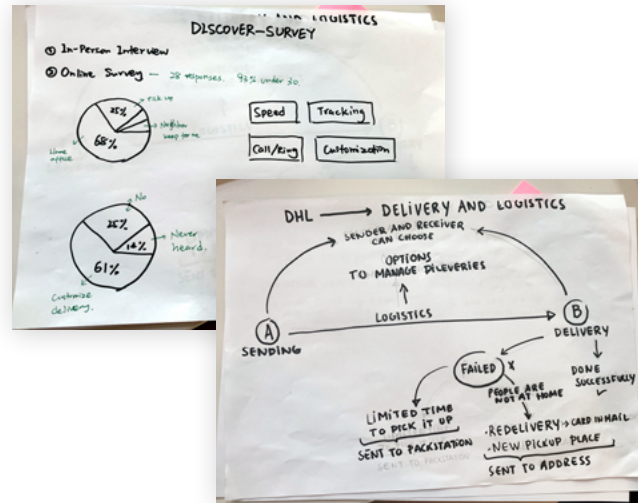 AND LOGISTICS
DISCOVER-SURVEY
① In-Person Interview
② Online Survey — 28 responses. 93% under 30.
25%
Pick up
Neighbor
keep for me
68%
Home
office
Speed
Tracking
Call/Ring
Customization
No
25%
Never
heard.
14%
61%
Customize
delivery.
DHL → DELIVERY AND LOGISTICS
SENDER AND RECEIVER
CAN CHOOSE
OPTIONS
TO MANAGE DILEVERIES
LOGISTICS
A
SENDING
B
DELIVERY
FAILED X
DONE
SUCCESSFULLY
✓
PEOPLE ARE
NOT AT HOME
LIMITED TIME
TO PICK IT UP
SENT TO PACKSTATION
SENT TO PACKSTATION
· REDELIVERY → CARD IN MAIL
· NEW PICKUP PLACE
SENT TO ADDRESS